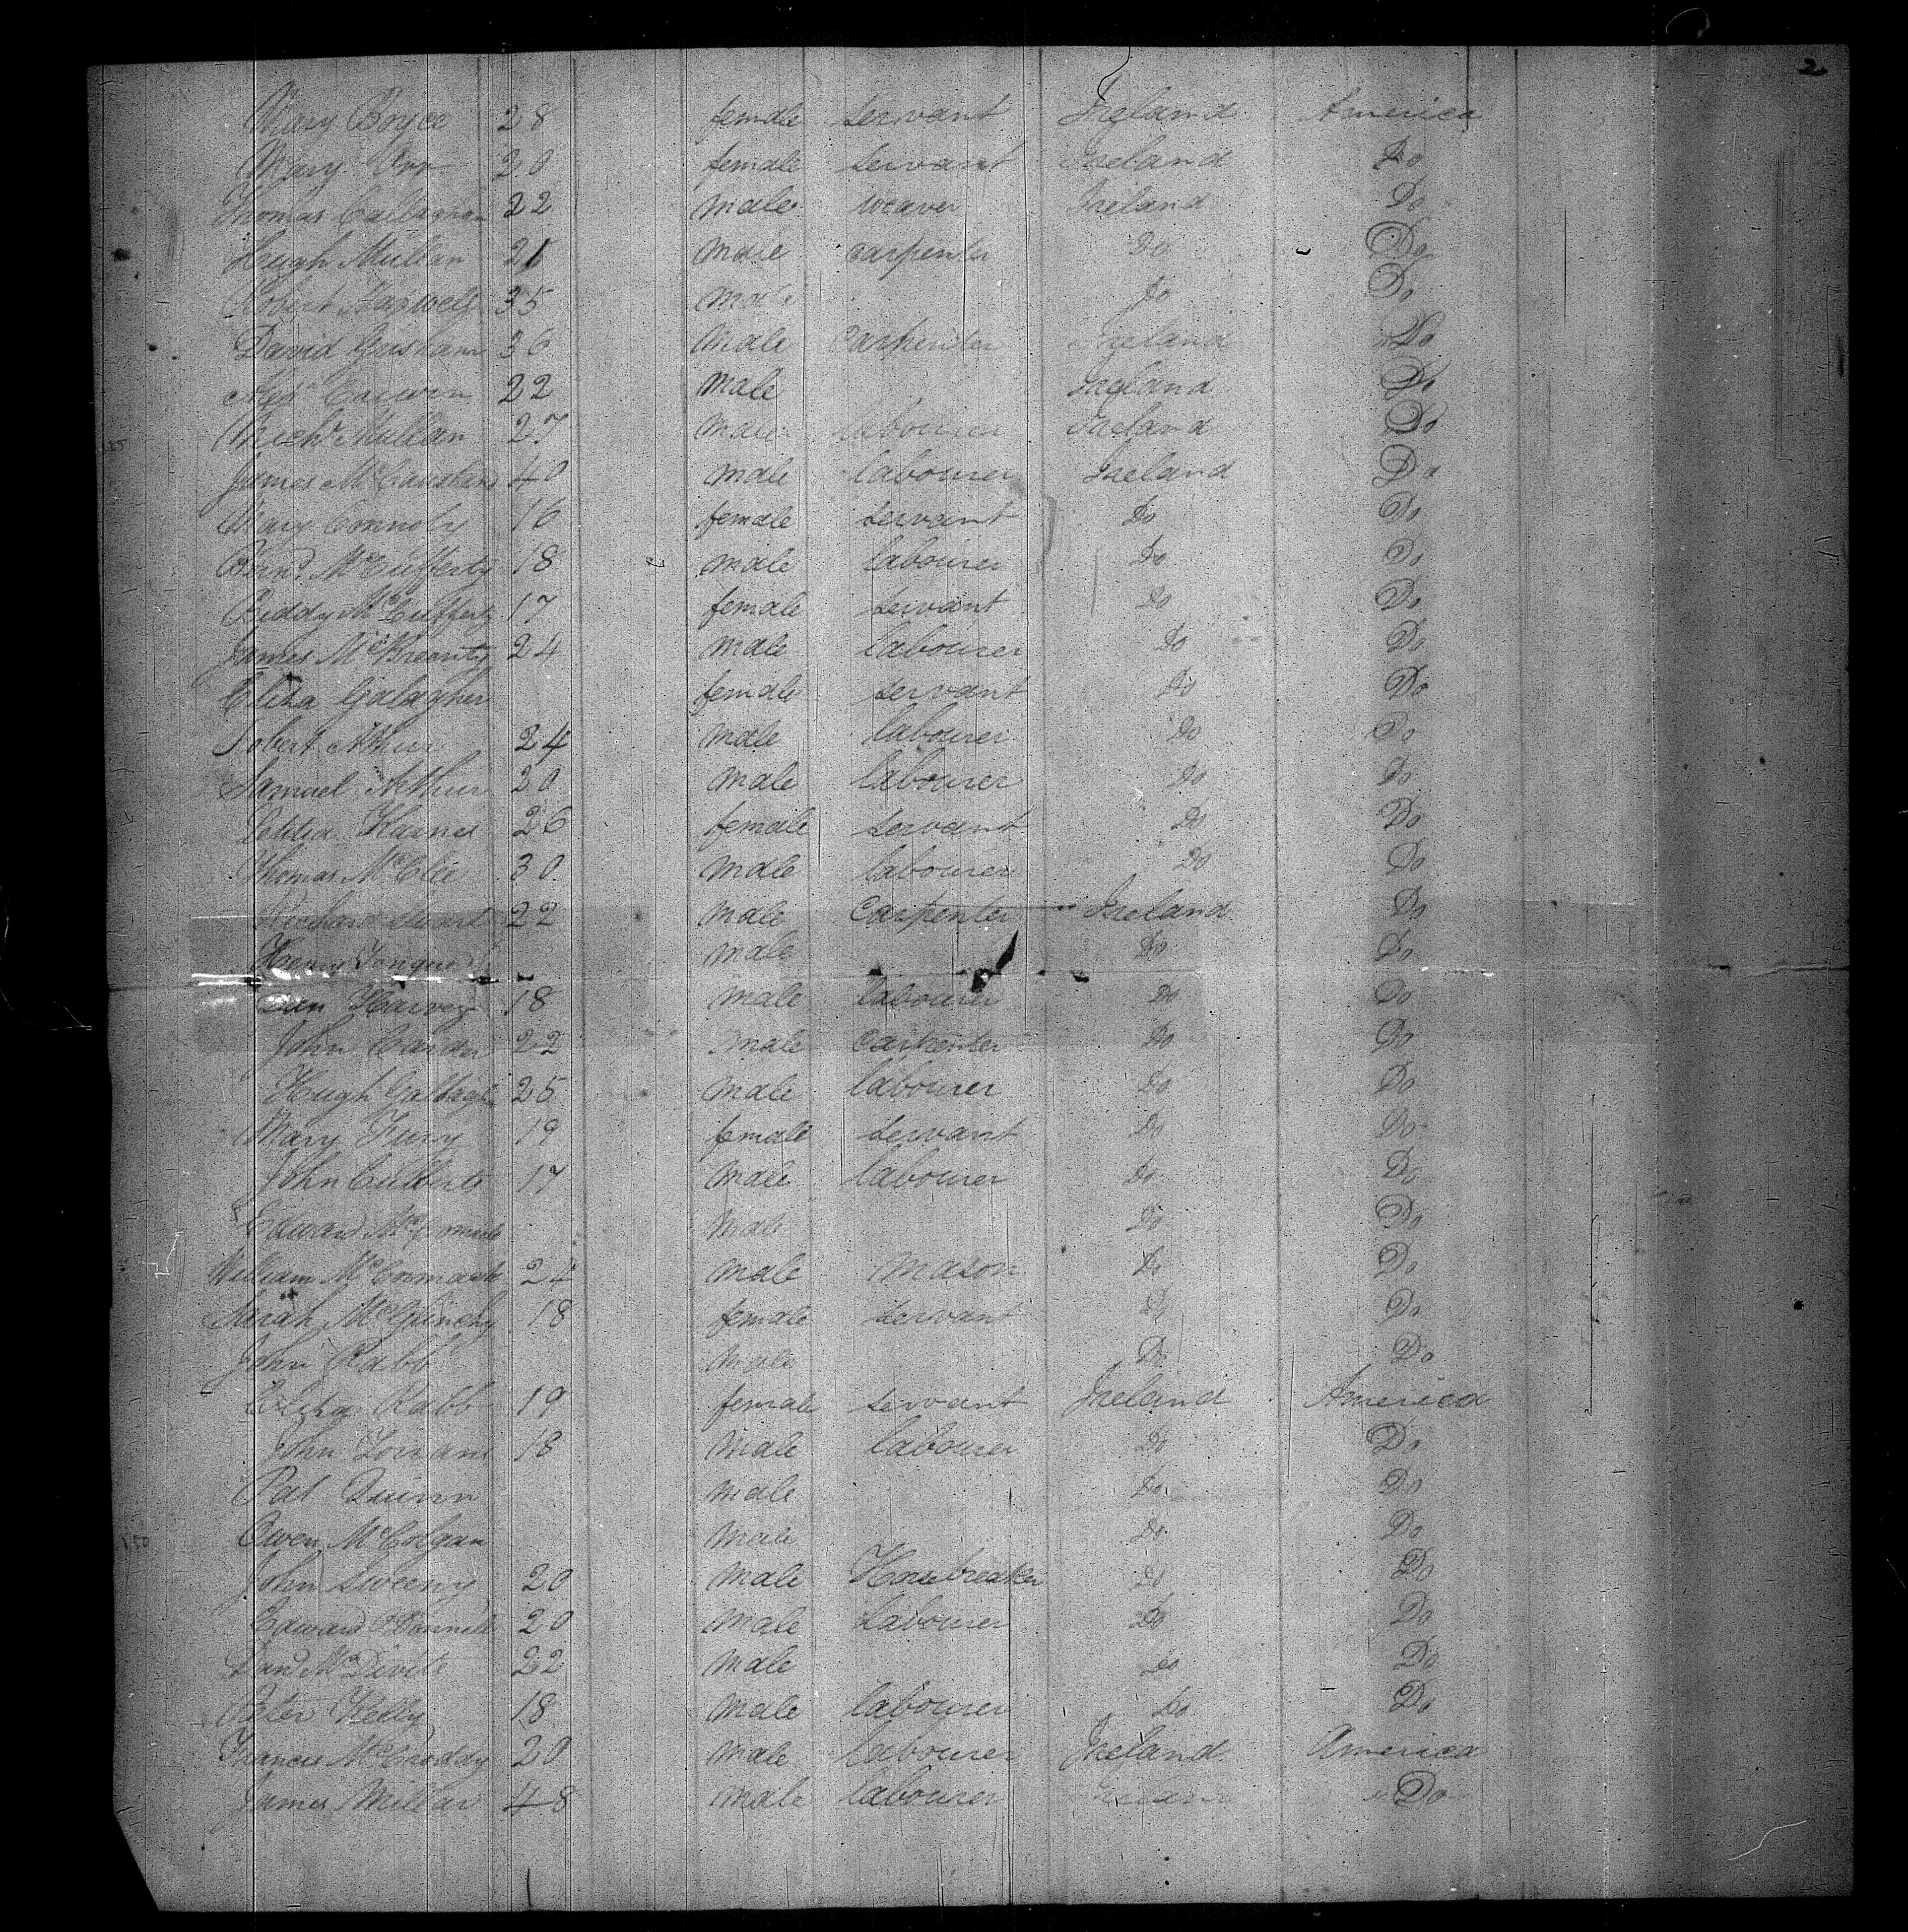 2
Mary Boyce 28 female servant Ireland America
Mary Orr 20 female servant Ireland Do
Thomas Callaghan 22 male weaver Ireland Do
Hugh Mullan 21 male carpenter Do Do
Robert 35 male Do Do
David Grisham 36 male Carpenter Ireland Do
22 male Ireland Do
Mich Mullan 27 male labourer Ireland Do
James McCausland 40 male labourer Ireland Do
Mary Connoly 16 female servant Do Do
McCufferty 18 male labourer Do Do
Biddy McCufferty 17 female servant Do Do
James McKreanty 24 male labourer Do Do
Eliza Galagher female servant Do Do
Robert Arthur 24 male labourer Do Do
Samuel Arthur 20 male labourer Do Do
Letitia Karnes 26 female servant Do Do
Thomas McClee 30 male labourer Do Do
Richard 22 male Carpenter Ireland Do
Henry male Do Do
Dan Harvey 18 male labourer Do Do
John 22 male carpenter Do Do
Hugh 25 male labourer Do Do
Mary Fury 19 female servant Do Do
John 17 male labourer Do Do
Edward male Do Do
William McCormack 24 male mason Do Do
Sarah McGlinchy 18 female servant Do Do
John Rabb male Do Do
Eliza Rabb 19 female servant Ireland America
John 18 male labourer Do Do
Pat Quinn male Do Do
Owen McColgan male Do Do
150
John Sweeny 20 male Horsebreaker Do Do
Edward O'Donnell 20 male labourer Do Do
McDivite 22 male Do Do
Peter Kelly 18 male labourer Do Do
Francis McCroddy 20 male labourer Ireland America
James Millar 48 male labourer Ireland Do